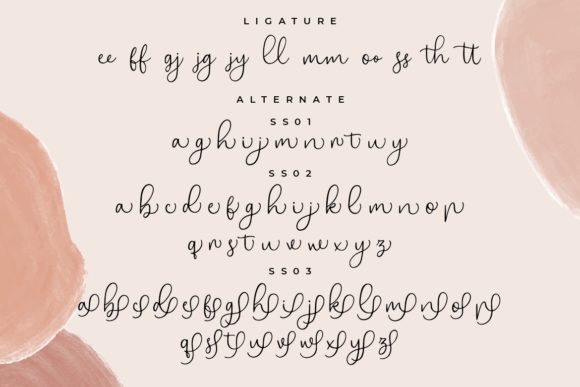 LIGATURE
ee ff gj jg jy ll mm oo ss th tt
ALTERNATE
SS01
a g h i j m n r t u w y
SS02
a b c d e f g h i j k l m n o p
q r s t u v w x y z
SS03
a b c d e f g h i j k l m n o p
q r s t u v w x y z